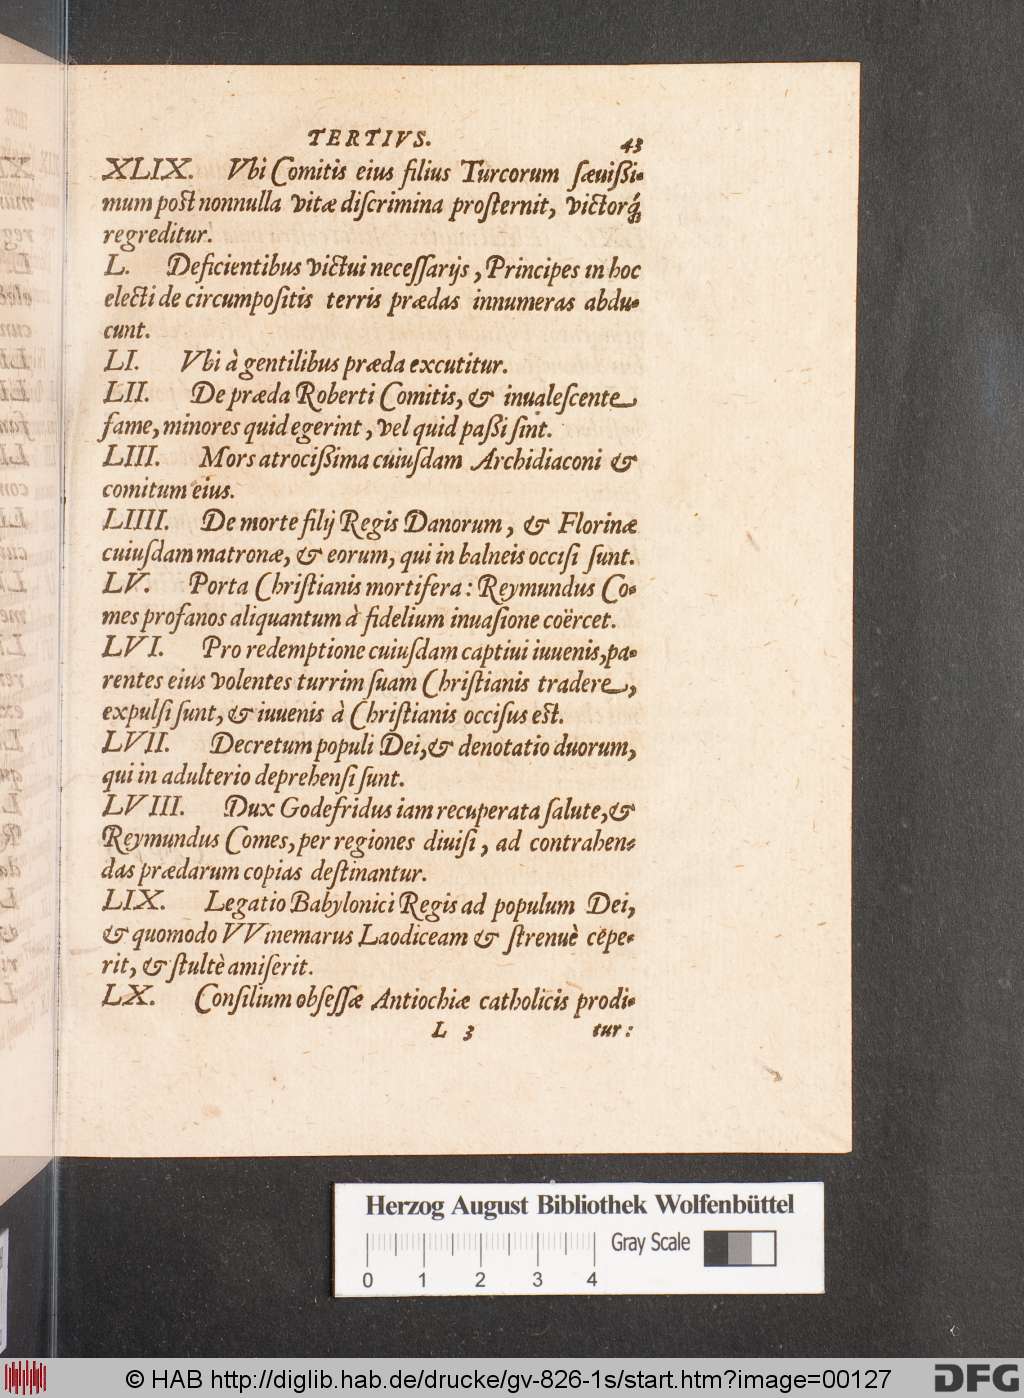 TERTIVS. 43
XLIX. Vbi Comitis eius filius Turcorum sæuißi-
mum post nonnulla vitæ discrimina prosternit, victorq́;
regreditur.
L. Deficientibus victui necessarijs, Principes in hoc
electi de circumpositis terris prædas innumeras abdu-
cunt.
LI. Vbi à gentilibus præda excutitur.
LII. De præda Roberti Comitis, & inualescente
fame, minores quid egerint, vel quid paßi sint.
LIII. Mors atrocißima cuiusdam Archidiaconi &
comitum eius.
LIIII. De morte filij Regis Danorum, & Florinæ
cuiusdam matronæ, & eorum, qui in balneis occisi sunt.
LV. Porta Christianis mortifera: Reymundus Co-
mes profanos aliquantum à fidelium inuasione coërcet.
LVI. Pro redemptione cuiusdam captiui iuuenis, pa-
rentes eius volentes turrim suam Christianis tradere,
expulsi sunt, & iuuenis à Christianis occisus est.
LVII. Decretum populi Dei, & denotatio duorum,
qui in adulterio deprehensi sunt.
LVIII. Dux Godefridus iam recuperata salute, &
Reymundus Comes, per regiones diuisi, ad contrahen-
das prædarum copias destinantur.
LIX. Legatio Babylonici Regis ad populum Dei,
& quomodo VVinemarus Laodiceam & strenuè cępe-
rit, & stultè amiserit.
LX. Consilium obsessæ Antiochiæ catholicis prodi-
L 3 tur:
Herzog August Bibliothek Wolfenbüttel
Gray Scale
0 1 2 3 4
© HAB http://diglib.hab.de/drucke/gv-826-1s/start.htm?image=00127
DFG